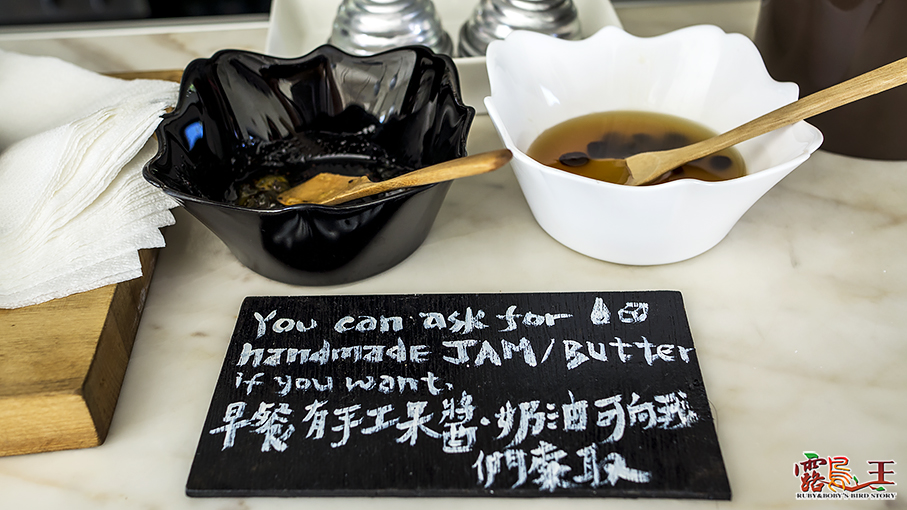 You can ask for
handmade JAM/Butter
if you want.
早餐有手工果醬·奶油可向我
們索取
露鳥王
RUBY&BOBY'S BIRD STORY